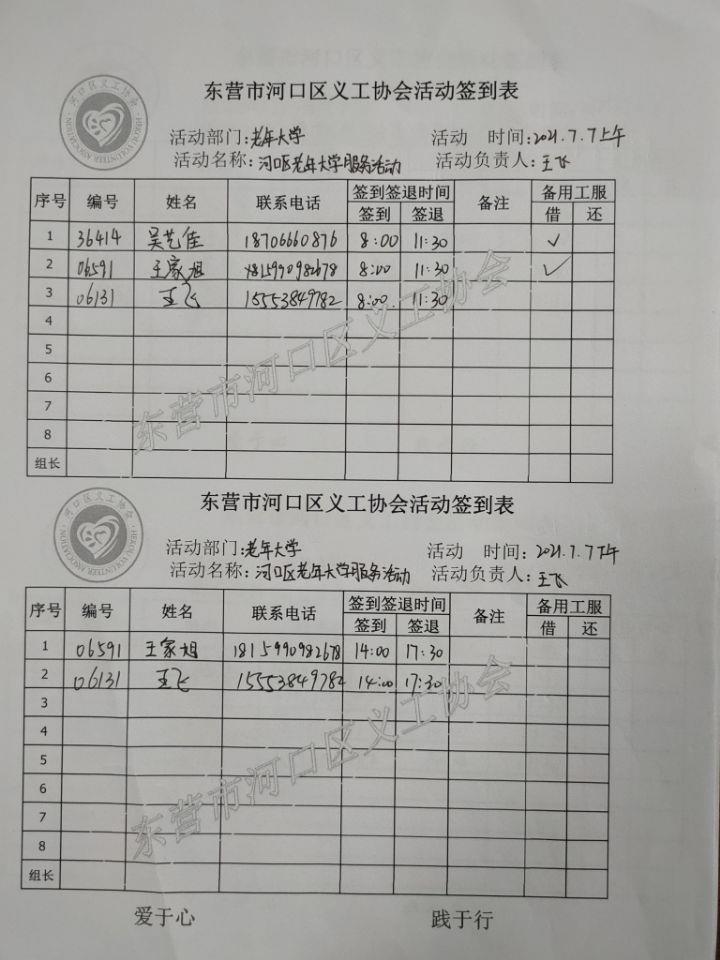 河口区义工协会
HEKOU VOLUNTEER ASSOCIATION
东营市河口区义工协会活动签到表
活动部门:老年大学 活动 时间:2021.7.7上午
活动名称:河口区老年大学服务活动 活动负责人:王飞
序号 编号 姓名 联系电话 签到签退时间 备注 备用工服
签到 签退 借 还
1 36414 吴艺佳 18706660876 8:00 11:30 ✓
2 06591 王家旭 1815990982678 8:00 11:30 ✓
3 06131 王飞 15553849782 8:00 11:30
4
5
6
7
8
组长
东营市河口区义工协会
河口区义工协会
HEKOU VOLUNTEER ASSOCIATION
东营市河口区义工协会活动签到表
活动部门:老年大学 活动 时间:2021.7.7下午
活动名称:河口区老年大学服务活动 活动负责人:王飞
序号 编号 姓名 联系电话 签到签退时间 备注 备用工服
签到 签退 借 还
1 06591 王家旭 1815990982678 14:00 17:30
2 06131 王飞 15553849782 14:00 17:30
3
4
5
6
7
8
组长
东营市河口区义工协会
爱于心 践于行